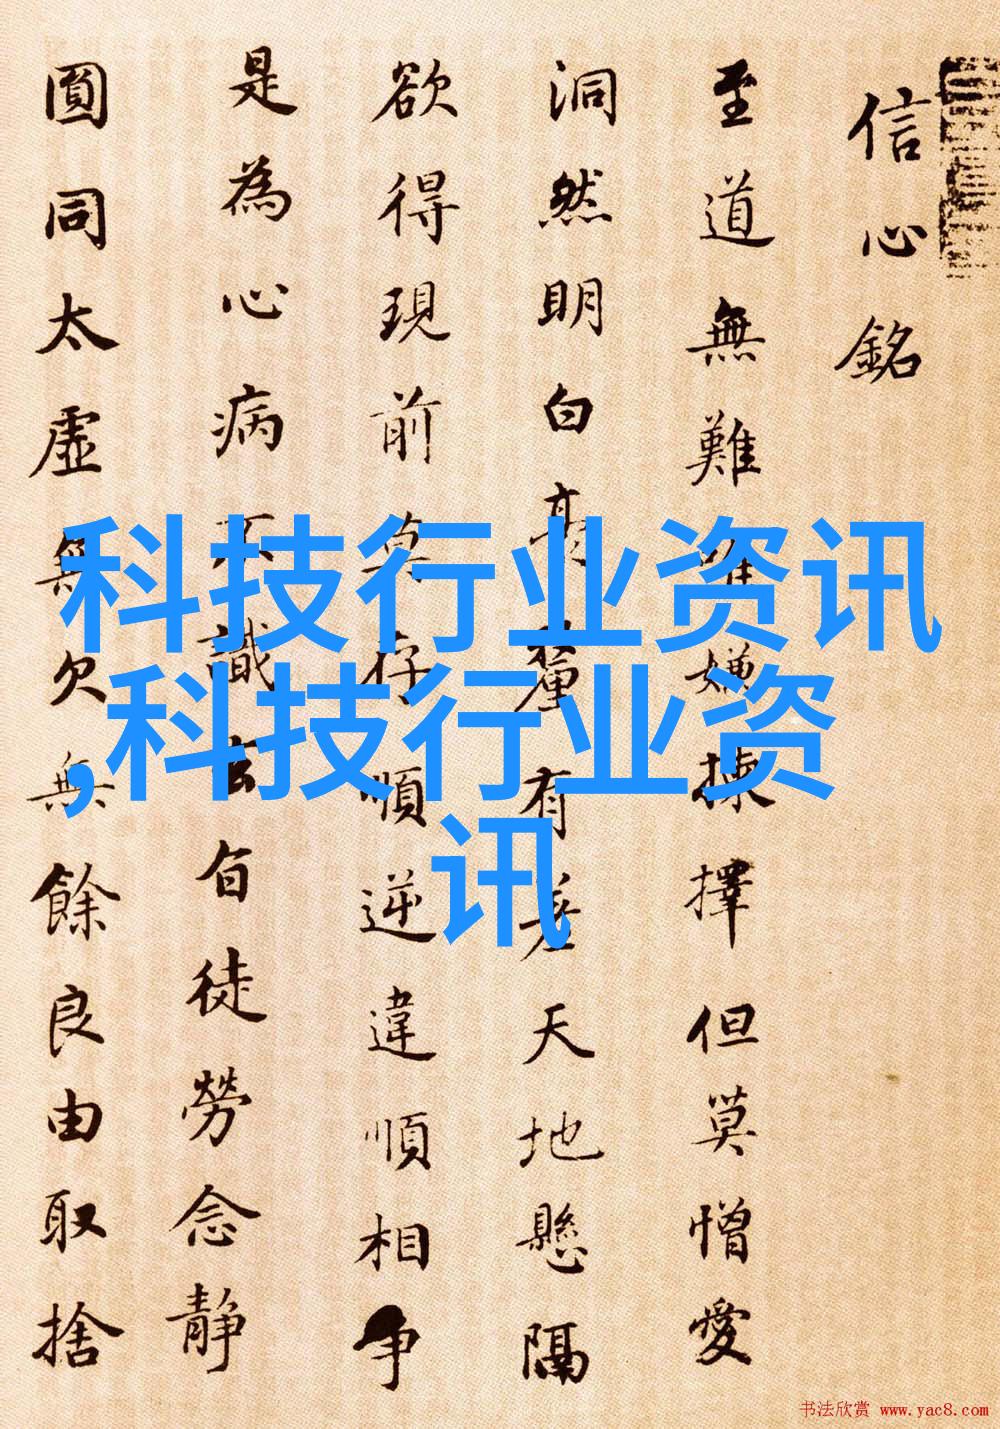 信心銘
至道無難唯嫌揀擇但莫憎愛
洞然明白毫釐有差天地懸隔
欲得現前莫存順逆違順相争
是為心病不識玄旨徒勞念静
圓同太虛無欠無餘良由取捨
科技行业资讯
,科技行业资
讯
书法欣赏 www.yac8.com